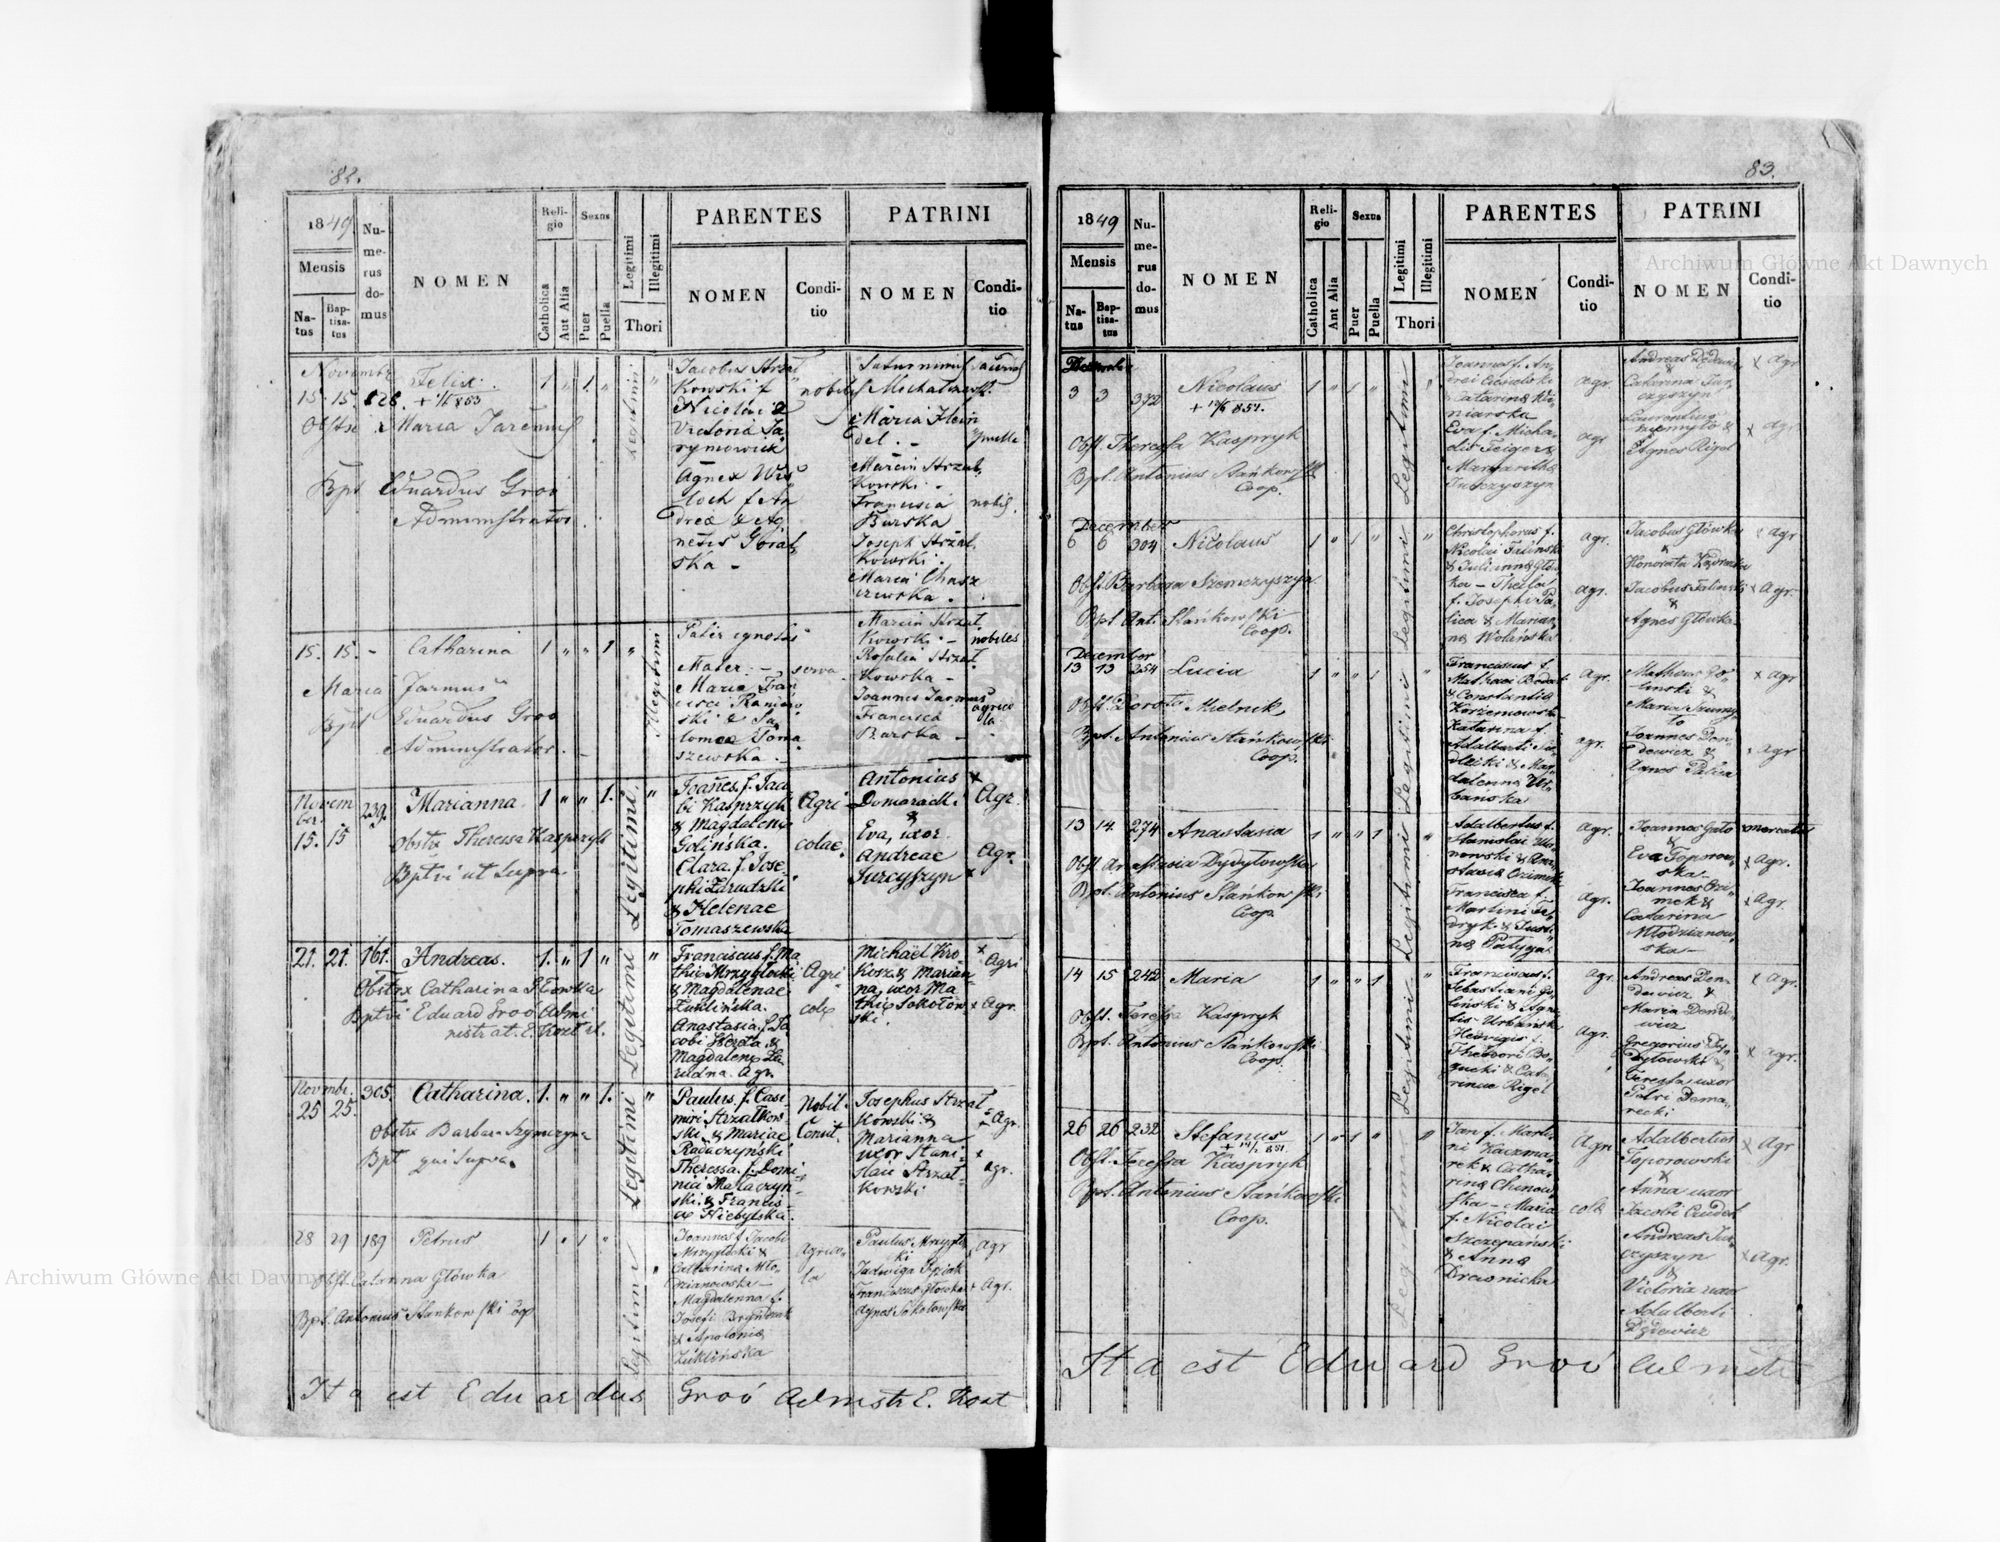 82.
1849
Mensis
Natus
Baptisatus
Numerus domus
NOMEN
Religio
Catholica
Aut Alia
Sexus
Puer
Puella
Legitimi
Illegitimi
Thori
PARENTES
NOMEN
Conditio
PATRINI
NOMEN
Conditio
Novembr
15. 15. 128. Felix.
1 " 1 "
Obstx Maria
Bpt Eduardus Groó
Administrator
Legitimi
Jacobus Strzał
kowski f
Nicolai &
Victoria Ja
rymowicz
Agnes
f An
dreæ & Ag
netis Góral
ska -
nobiles
Saturninus
Michalzewsk.
Maria Klein
del. -
Marcin Strzał
kowski -
Francisia
Burska
Joseph Strzał
kowski.
Maria Chasz
czewska.
nobil.
15. 15. - Catharina 1 " " 1 "
Maria Jarmus
Bpt Eduardus Groó
Administrator. -
Illegitimi
Pater ignotus
Mater: -
Maria Fran
cisci
ski & Sa
lomea Toma
szewska.
serva
Marcin Strzał
kowski. -
Rosalia Strzał
kowska -
Joannes Jarmus
Francisca
Burska -
nobiles
agrico
la
Novem
ber
15. 15 239. Marianna. 1 " " 1. "
Obstx Theressa Kasprzyk
Bptvi ut Supra.
Legitimi
Joañes. f. Jaco
bi Kasprzyk
& Magdalenæ
Golińska.
Clara. f. Jose
phi Zarudzki
& Helenae
Tomaszewska
Agri
colae.
Antonius
Domaradzki
&
Eva, uxor
Andreae
Jurcyszyn
x
Agr.
Agr.
x
21. 21. 161. Andreas. 1. " 1 " "
Obstrx Catharina Głowka
Bptvi Eduard Groó Admi
nistrat. E. Kozl rl.
Legitimi
Franciscus f. Ma
thiæ Mrzygłocki
& Magdalenae
Zuklińska.
Anastasia. f. Ja
cobi &
Magdalenæ Za
rudna. Agr.
Agri
colæ
Michael Kro
& Marian
na, uxor Ma
thiæ Sokołow
ski.
x
Agri
x Agr.
Novmbr.
25 25. 305. Catharina. 1. " " 1. "
Obstrx Barbara Szymczyna
Bpt qui Supra.
Legitimi
Paulus. f. Casi
miri Strzałkow
ski, & Mariae
Raduczyński
Theressa. f. Domi
nici Małaczyn
ski & Francis
cæ Niebylska.
Nobil.
Josephus Strzał
kowski &
Marianna
uxor Stani
slai Strzał
kowski
x Agr.
x
agr.
28 29 189 Petrus 1 " 1 "
Obst. Catarina Główka
Bpt. Antonius Stańkowski Cop
Legitimi
Joannes f. Jacobi
Mrzygłocki &
Catharina Mło
dzianowska -
Magdalenna f.
Josefi
& Apolonia
Zuklińska
Agrico
la
Paulus Mrzygło
ki
Jadwiga
Franciscus Główka
Agnes Sokołowska
x Agr
x Agr.
Ita est Eduardus Groó Admstr E. Kozl
83.
1849
Mensis
Natus
Baptisatus
Numerus domus
NOMEN
Religio
Catholica
Aut Alia
Sexus
Puer
Puella
Legitimi
Illegitimi
Thori
PARENTES
NOMEN
Conditio
PATRINI
NOMEN
Conditio
3 3 372 Nicolaus 1 " 1 " "
Obst. Theressa Kaspryk
Bpt. Antonius Stańkowski
Coop.
Legitimi
Joannes f. An
drei
Catarina
niarska
Eva f. Micha
elis Feiger &
Margaretha
Jurczyszyn
agr.
agr
Andreas
&
Catarina Jur
czyszyn
Laurentius
&
Agnes Rigel
x agr
x agr.
December
6 6 304 Nicolaus 1 " 1 " "
Obst. Barbara Szemczyszyn
Bpt Ant. Stańkowski
Coop.
Legitimi
Christophorus f.
Nicolai Falinski
& Julianna Głów
ka - Thecla
f. Josephi Pa
lica & Marian
na Wolańska
agr.
agr.
Jacobus Główka
&
Honorata
Jacobus Falinski
&
Agnes Główka
x agr
x Agr.
December
13 13 254 Lucia 1 " " 1 "
Obst. Dorota Mielnik
Bpt. Antonius Stańkowski
Coop.
Legitimi
Franciscus f.
Mathaei
& Constantia
Korzeniowska
Katarina f.
Adalberti
& Mag
dalenna Ur
banska
Agr.
agr.
Matheus Go
linski &
Maria Szumy
to
Joannes Den
dewicz &
Agnes Palica
x agr
x agr
13 14. 274 Anastasia 1 " " 1 "
Obst Anastasia Dydyłowska
Bpt. Antonius Stańkowski
Coop.
Legitimi
Adalbertus f.
Stanislai Ur
nowski & Ana
stasia
Francisca f.
Martini Fe
dryk & Justi
na Patyga
Agr.
Agr.
Joannes Gato
&
Eva Toporow
ska -
Joannes
mek &
Catarina
Młodzianow
ska -
mercator
x Agr.
x Agr.
14 15 242 Maria 1 " " 1 "
Obst. Teressa Kaspryk
Bpt. Antonius Stańkowski
Coop.
Legitimi
Franciscus f.
Sebastiani Go
linski & Agne
tis Urbańska
Hedvigis f.
Theodori Bo
gucki & Cat
rinae Rigel
agr.
Agr.
Andreas Den
dewicz &
Maria Dende
wicz
Gregorius Dy
dyłowski &
Teressa uxor
Petri Doma
recki
x Agr
x agr.
26 26 232 Stefanus 1 " 1 " "
Obst. Teressa Kaspryk
Bpt. Antonius Stańkowski
Coop.
Legitima
Jan f. Marti
ni Kaczma
rek & Catha
rina Chanow
ska - Maria
f. Nicolai
Szczepański
& Anna
Drasnicka
Agri
colæ
Adalbertus
Toporowski
&
Anna uxor
Jacobi
Andreas Jur
czyszyn
&
Victoria uxor
Adalberti
x Agr
x Agr.
Ita est Eduard Groó Admstr
Archiwum Główne Akt Dawnych
Archiwum Główne Akt Dawnych